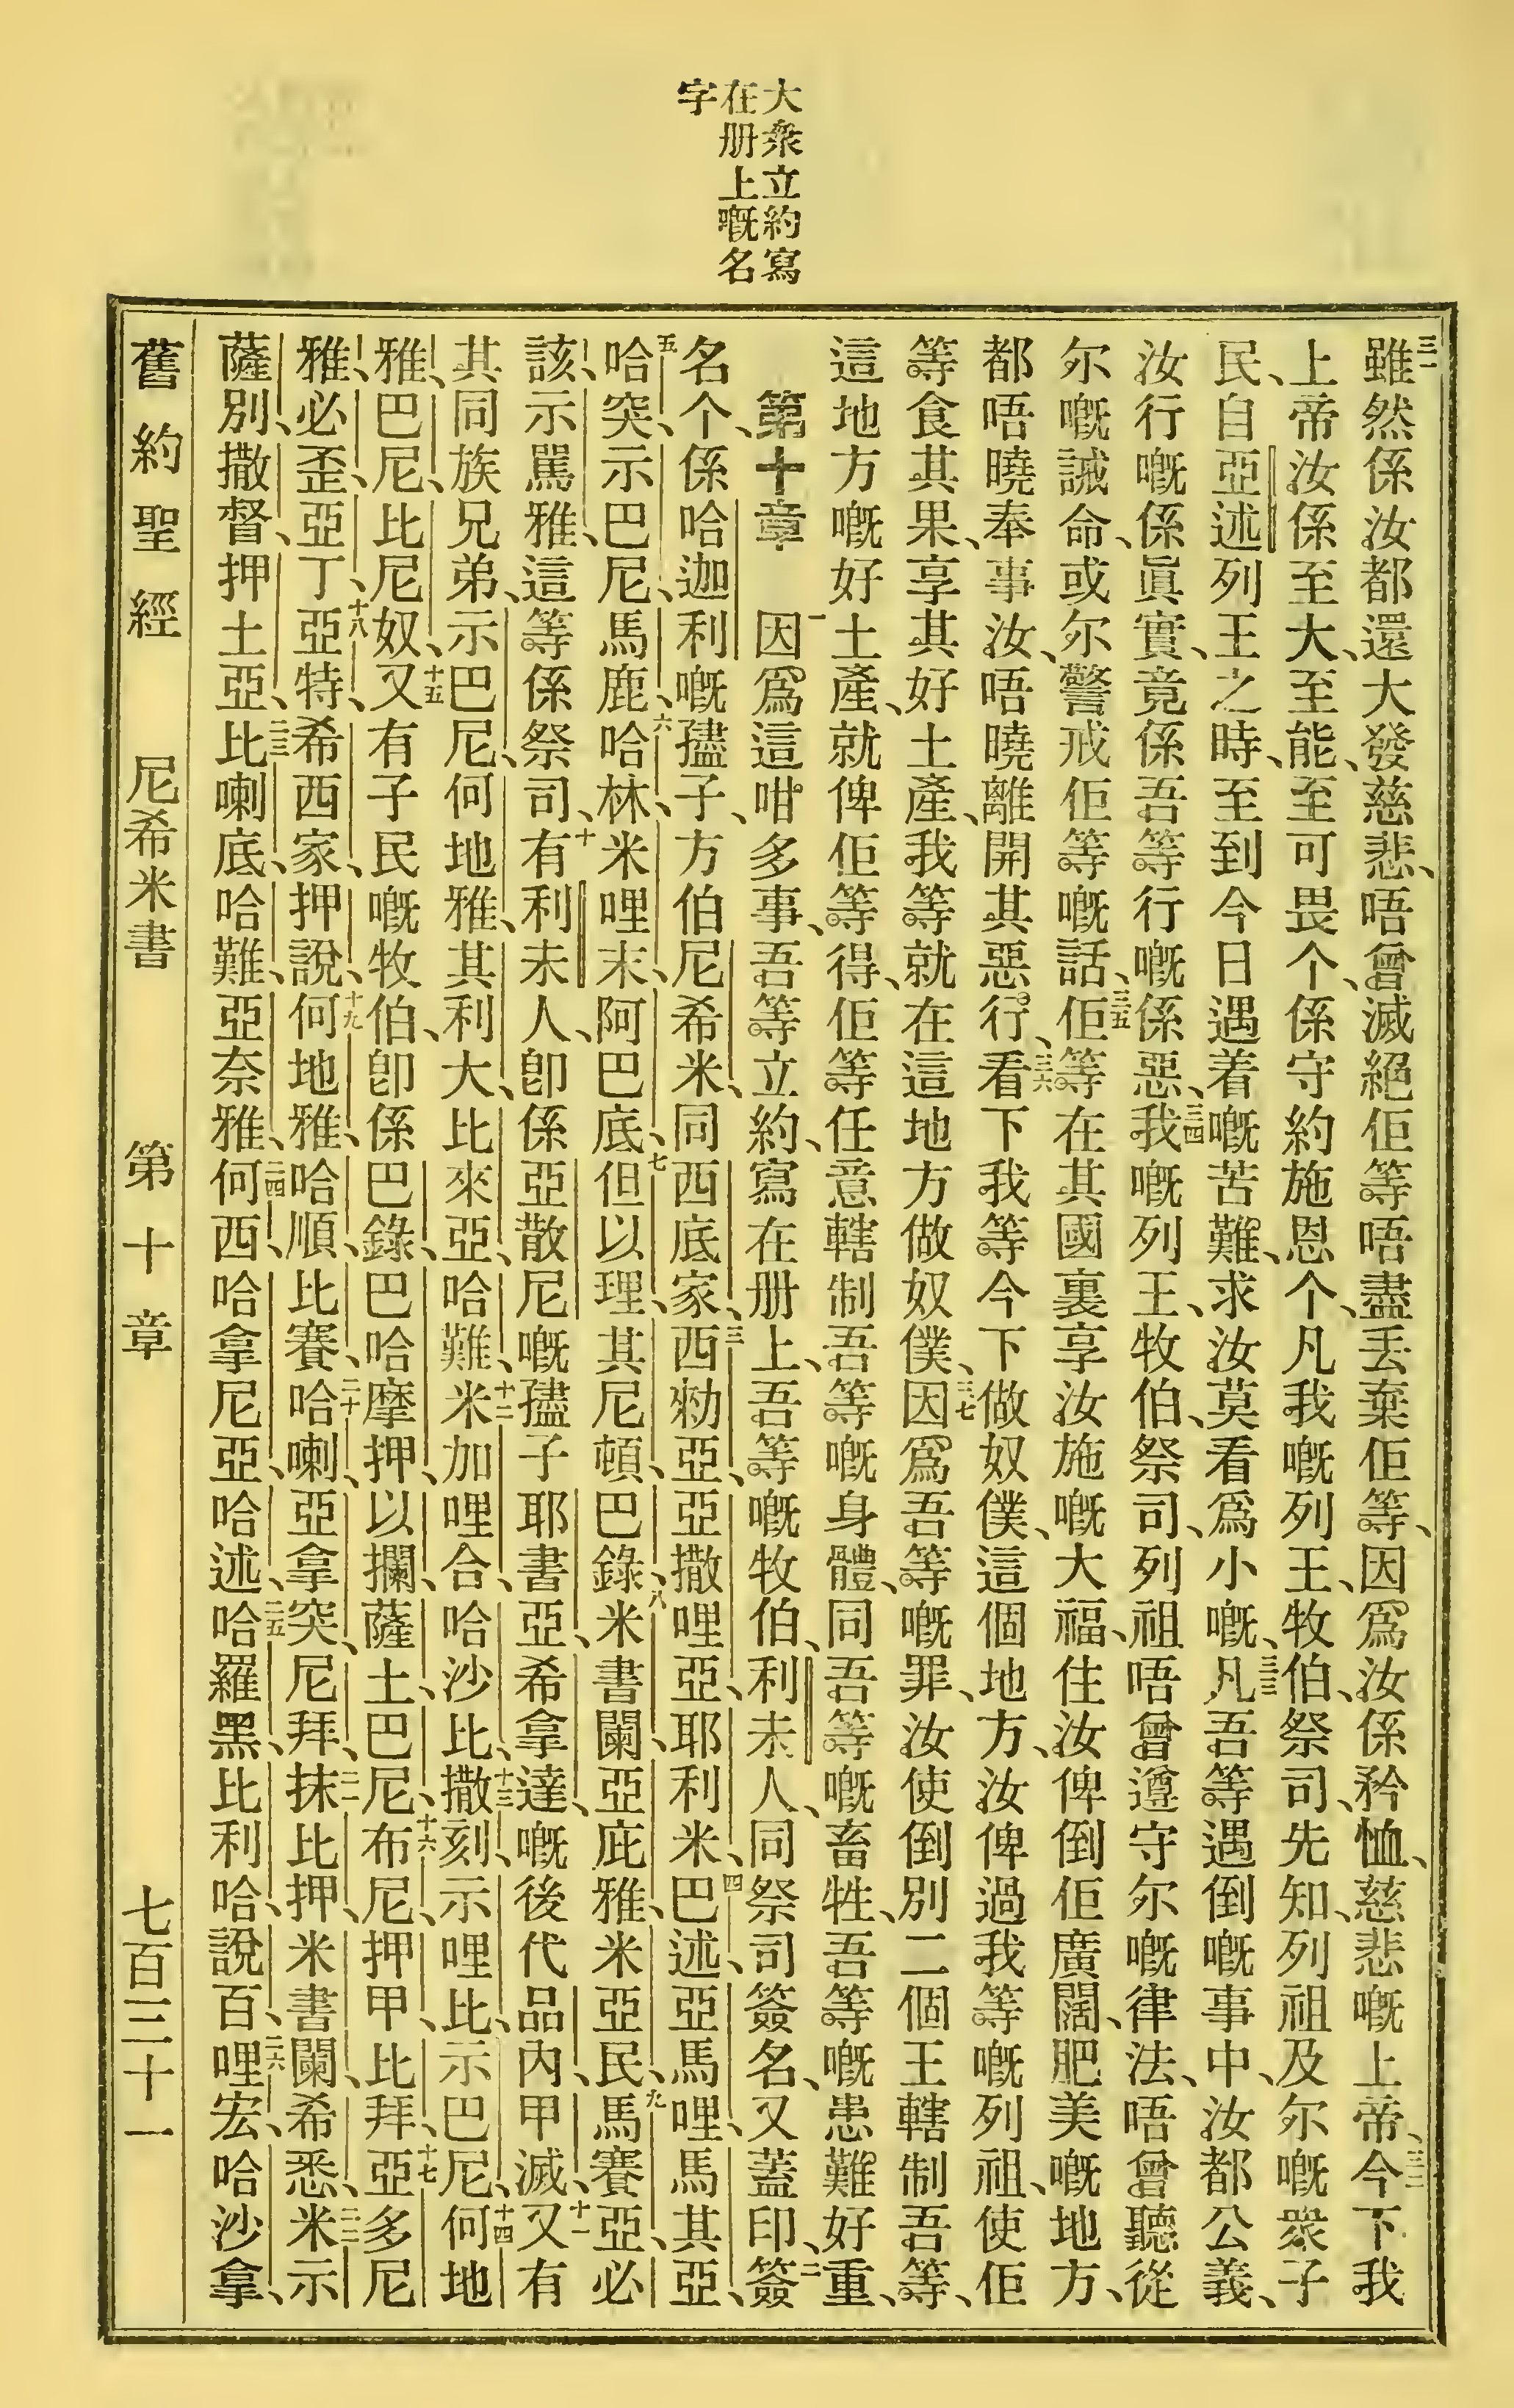 大衆立約寫
在册上嘅名
字
三一雖然係汝都還大發慈悲、唔曾滅絕佢等唔盡丢棄佢等、因爲汝係矜恤、慈悲嘅上帝、三二今下我
上帝汝係至大、至能、至可畏个、係守約施恩个、凡我嘅列王、牧伯、祭司、先知、列祖及尔嘅衆子
民、自亞述列王之時、至到今日遇着嘅苦難、求汝莫看爲小嘅、三三凡吾等遇倒嘅事中、汝都公義、
汝行嘅係眞實、竟係吾等行嘅係惡、三四我嘅列王、牧伯、祭司、列祖唔曾遵守尔嘅律法、唔曾聽從
尔嘅誡命、或尔警戒佢等嘅話、三五佢等在其國裏享汝施嘅大福、住汝俾倒佢廣闊、肥美嘅地方、
都唔曉奉事汝、唔曉離開其惡行、三六看下我等今下做奴僕、這個地方、汝俾過我等嘅列祖、使佢
等食其果、享其好土產、我等就在這地方做奴僕、三七因爲吾等嘅罪、汝使倒別二個王轄制吾等、
這地方嘅好土產、就俾佢等得、佢等任意轄制吾等嘅身體、同吾等嘅畜牲、吾等嘅患難好重、
第十章　一因爲這咁多事、吾等立約、寫在册上、吾等嘅牧伯、利未人、同祭司簽名、又蓋印、二簽
名个、係哈迦利嘅孻子、方伯尼希米、同西底家、三西勑亞、亞撒哩亞、耶利米、四巴述、亞馬哩、馬其亞、
五哈突、示巴尼、馬鹿、六哈林、米哩末、阿巴底、七但以理、其尼頓、巴錄、八米書闌、亞庇雅、米亞民、九馬賽亞、必
該、示罵雅、這等係祭司、十有利未人、卽係亞散尼嘅孻子耶書亞、希拿達嘅後代品內、甲滅、十一又有
其同族兄弟、示巴尼、何地雅、其利大、比來亞、哈難、十二米加、哩合、哈沙比、十三撒刻、示哩比、示巴尼、十四何地
雅、巴尼、比尼奴、十五又有子民嘅牧伯、卽係巴錄、巴哈摩押、以攔、薩土、巴尼、十六布尼、押甲、比拜、十七亞多尼
雅、必歪、亞丁、十八亞特、希西家、押說、十九何地雅、哈順、比賽、二十哈喇、亞拿突、尼拜、二一抹比押、米書闌、希悉、二二米示
薩別、撒督、押土亞、二三比喇底、哈難、亞奈雅、二四何西、哈拿尼亞、哈述、二五哈羅黑、比利哈、說百、二六哩宏、哈沙拿、
舊約聖經　尼希米書　第十章　七百三十一